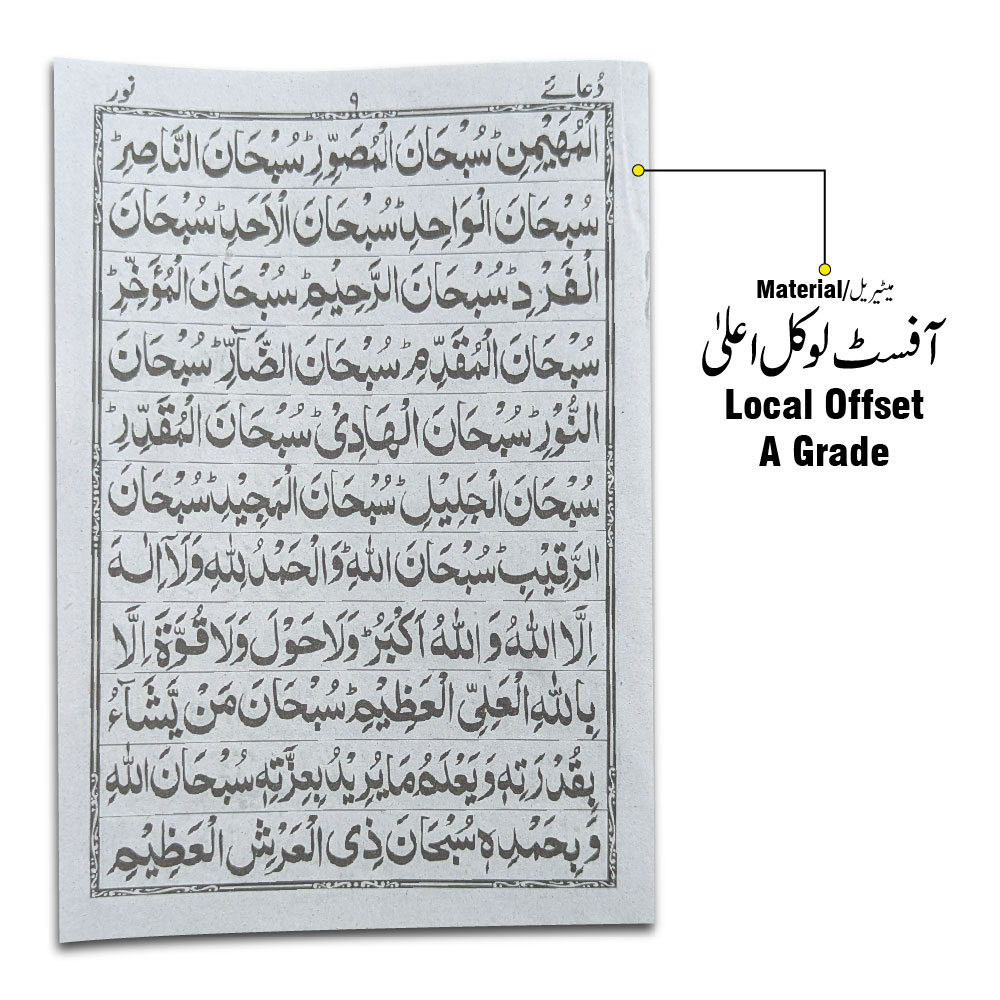 دُعائے ۹ نور
الْمُهَيْمِنِ ؕ سُبْحَانَ الْمُصَوِّرِ ؕ سُبْحَانَ النَّاصِرِ ؕ
سُبْحَانَ الْوَاحِدِ ؕ سُبْحَانَ الْاَحَدِ ؕ سُبْحَانَ
الْفَرْدِ ؕ سُبْحَانَ الرَّحِيْمِ ؕ سُبْحَانَ الْمُؤَخِّرِ ؕ
سُبْحَانَ الْمُقَدِّمِ ؕ سُبْحَانَ الضَّآرِّ ؕ سُبْحَانَ
النُّوْرِ ؕ سُبْحَانَ الْهَادِیْ ؕ سُبْحَانَ الْمُقَدِّرِ ؕ
سُبْحَانَ الْجَلِيْلِ ؕ سُبْحَانَ الْمَجِيْدِ ؕ سُبْحَانَ
الرَّقِيْبِ ؕ سُبْحَانَ اللهِ ؕ وَالْحَمْدُ لِلّٰهِ وَلَآ اِلٰهَ
اِلَّا اللهُ وَ اللهُ اَكْبَرُ ؕ وَلَا حَوْلَ وَلَا قُوَّةَ اِلَّا
بِاللهِ الْعَلِیِّ الْعَظِيْمِ ؕ سُبْحَانَ مَنْ يَّشَآءُ
بِقُدْرَتِهٖ وَ يَعْلَمُ مَا يُرِيْدُ بِعِزَّتِهٖ سُبْحَانَ اللهِ
وَ بِحَمْدِهٖ سُبْحَانَ ذِی الْعَرْشِ الْعَظِيْمِ
Material/میٹیریل
آفسٹ لوکل اعلیٰ
Local Offset
A Grade